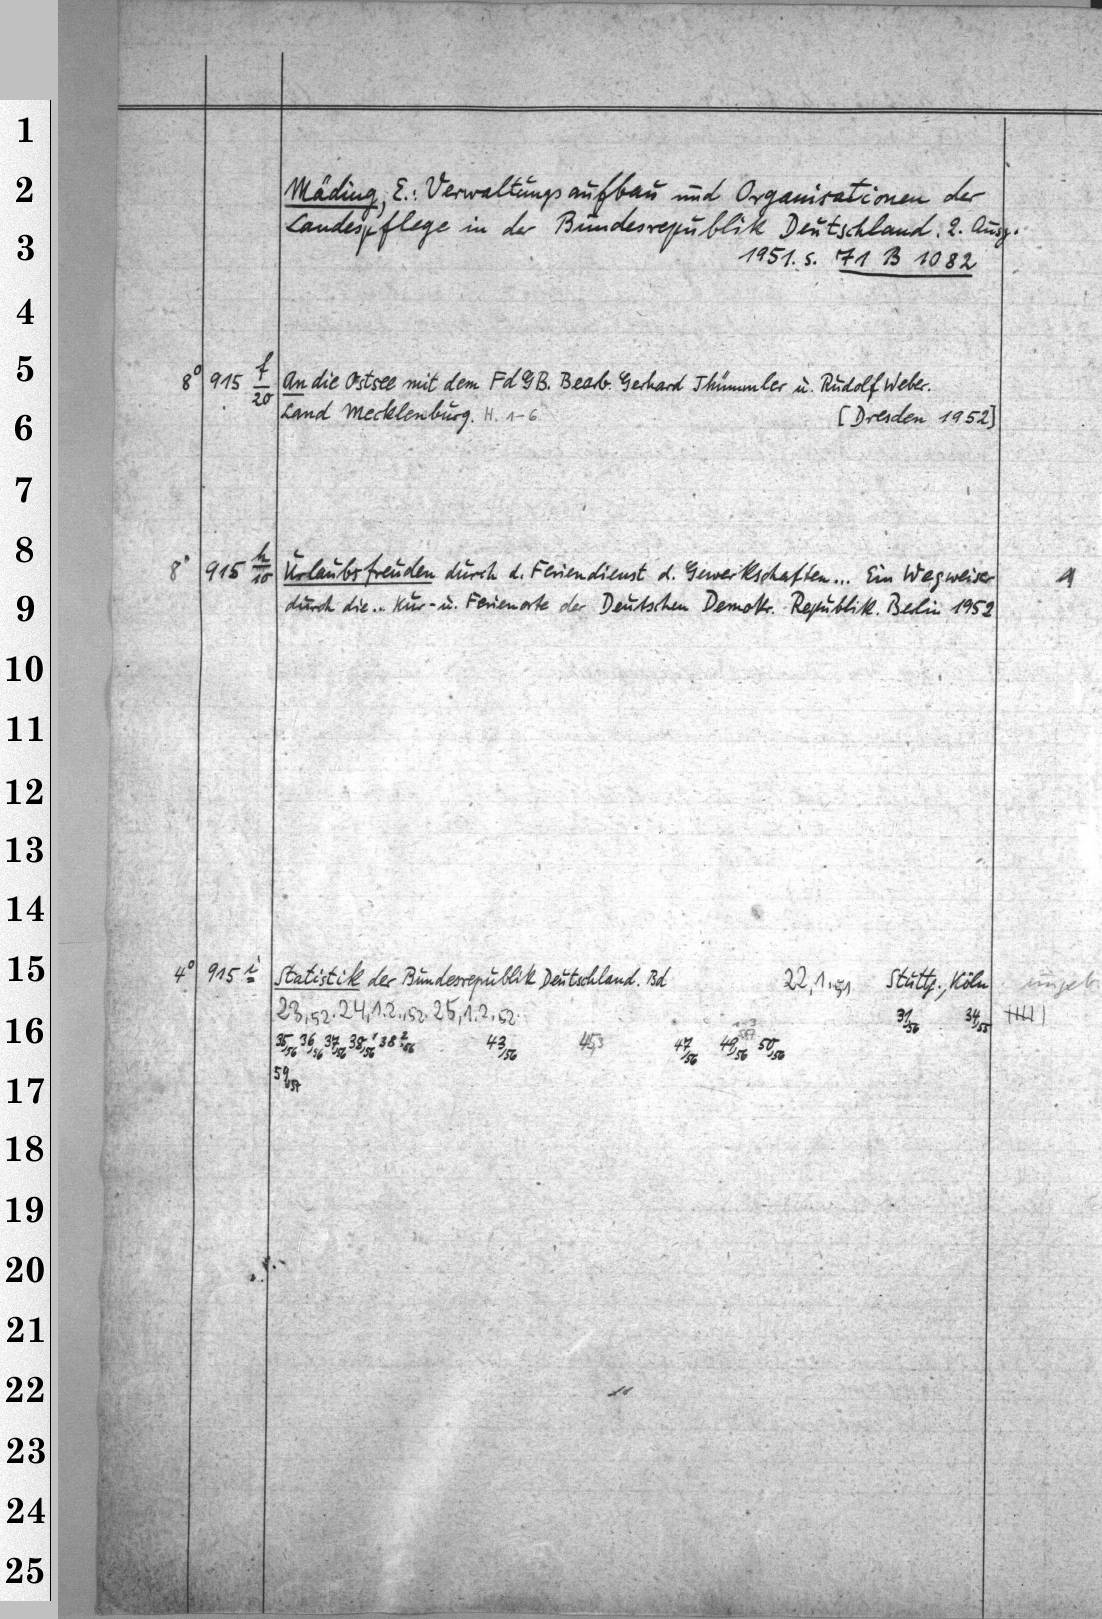 1
2
Mäding, E.: Verwaltungsaufbau und Organisationen der
Landespflege in der Bundesrepublik Deutschland. 2. Ausg.
3
1951. s. 71 B 1082
4
5
8° 915 f/20 An die Ostsee mit dem FdGB. Bearb. Gerhard Thümmler u. Rudolf Weber.
6
Land Mecklenburg. H. 1-6 [Dresden 1952]
7
8
8° 915 h/10 Urlaubsfreuden durch d. Feriendienst d. Gewerkschaften... Ein Wegweiser 1
9
durch die.. Kur- u. Ferienorte der Deutschen Demokr. Republik. Berlin 1952
10
11
12
13
14
15
4° 915 i Statistik der Bundesrepublik Deutschland. Bd 22,1.,51 Stuttg., Köln ungeb.
23,52. 24,1.2.,52. 25,1.2,52. 31/56 34/55
16
35/56 36/56 37/56 38,1/56 38 2/56 43/56 45,3 47/56 49/56 50/56
17
59/57
18
19
20
21
22
23
24
25